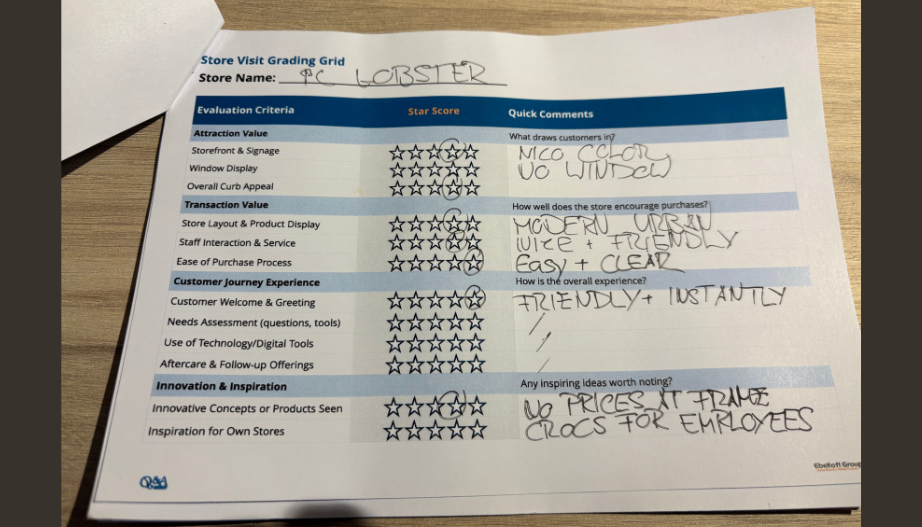 Store Visit Grading Grid
Store Name: PC LOBSTER
Evaluation Criteria Star Score Quick Comments
Attraction Value What draws customers in?
Storefront & Signage NICO COLOR
Window Display NO WINDOW
Overall Curb Appeal
Transaction Value How well does the store encourage purchases?
Store Layout & Product Display MODERN URBAN
Staff Interaction & Service NICE + FRIENDLY
Ease of Purchase Process EASY + CLEAR
Customer Journey Experience How is the overall experience?
Customer Welcome & Greeting FRIENDLY + INSTANTLY
Needs Assessment (questions, tools) /
Use of Technology/Digital Tools /
Aftercare & Follow-up Offerings /
Innovation & Inspiration Any inspiring ideas worth noting?
Innovative Concepts or Products Seen NO PRICES AT FRAME
Inspiration for Own Stores CROCS FOR EMPLOYEES
Ebeltoft Group